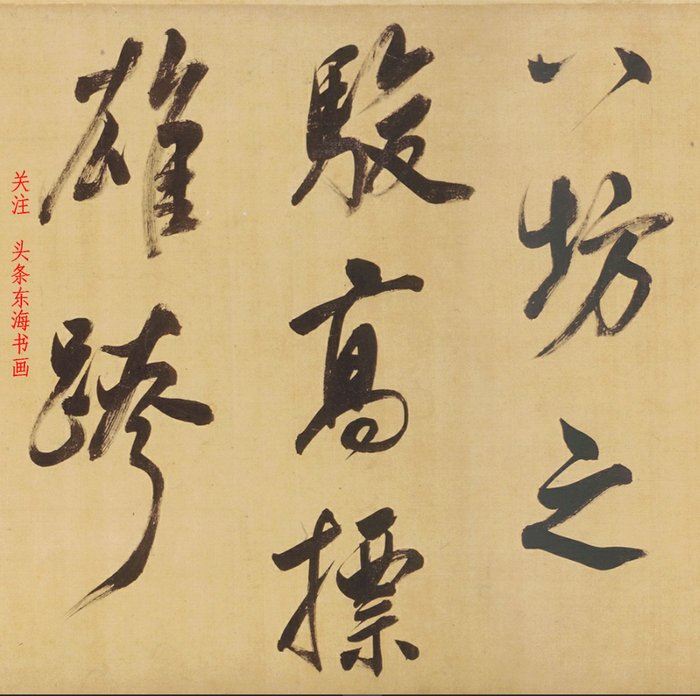 八坊之
駿高標
雄跨
关注 头条东海书画